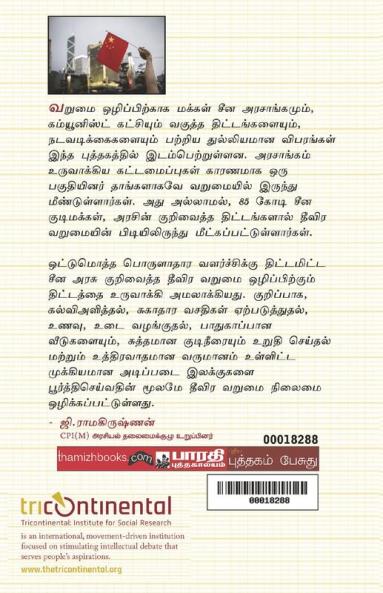 வறுமை ஒழிப்பிற்காக மக்கள் சீன அரசாங்கமும்,
கம்யூனிஸ்ட் கட்சியும் வகுத்த திட்டங்களையும்,
நடவடிக்கைகளையும் பற்றிய துல்லியமான விபரங்கள்
இந்த புத்தகத்தில் இடம்பெற்றுள்ளன. அரசாங்கம்
உருவாக்கிய கட்டமைப்புகள் காரணமாக ஒரு
பகுதியினர் தாங்களாகவே வறுமையில் இருந்து
மீண்டுள்ளார்கள். அது அல்லாமல், 85 கோடி சீன
குடிமக்கள், அரசின் குறிவைத்த திட்டங்களால் தீவிர
வறுமையின் பிடியிலிருந்து மீட்கப்பட்டுள்ளார்கள்.
ஒட்டுமொத்த பொருளாதார வளர்ச்சிக்கு திட்டமிட்ட
சீன அரசு குறிவைத்த தீவிர வறுமை ஒழிப்பிற்கும்
திட்டத்தை உருவாக்கி அமலாக்கியது. குறிப்பாக,
கல்வியளித்தல், சுகாதார வசதிகள் ஏற்படுத்துதல்,
உணவு, உடை வழங்குதல், பாதுகாப்பான
வீடுகளையும், சுத்தமான குடிநீரையும் உறுதி செய்தல்
மற்றும் உத்திரவாதமான வருமானம் உள்ளிட்ட
முக்கியமான அடிப்படை இலக்குகளை
பூர்த்திசெய்வதின் மூலமே தீவிர வறுமை நிலைமை
ஒழிக்கப்பட்டுள்ளது.
- ஜி.ராமகிருஷ்ணன்
CPI(M) அரசியல் தலைமைக்குழு உறுப்பினர்
00018288
thamizhbooks.com பாரதி புத்தகாலயம் புத்தகம் பேசுது
00018288
tricontinental
Tricontinental: Institute for Social Research
is an international, movement-driven institution
focused on stimulating intellectual debate that
serves people's aspirations.
www.thetricontinental.org